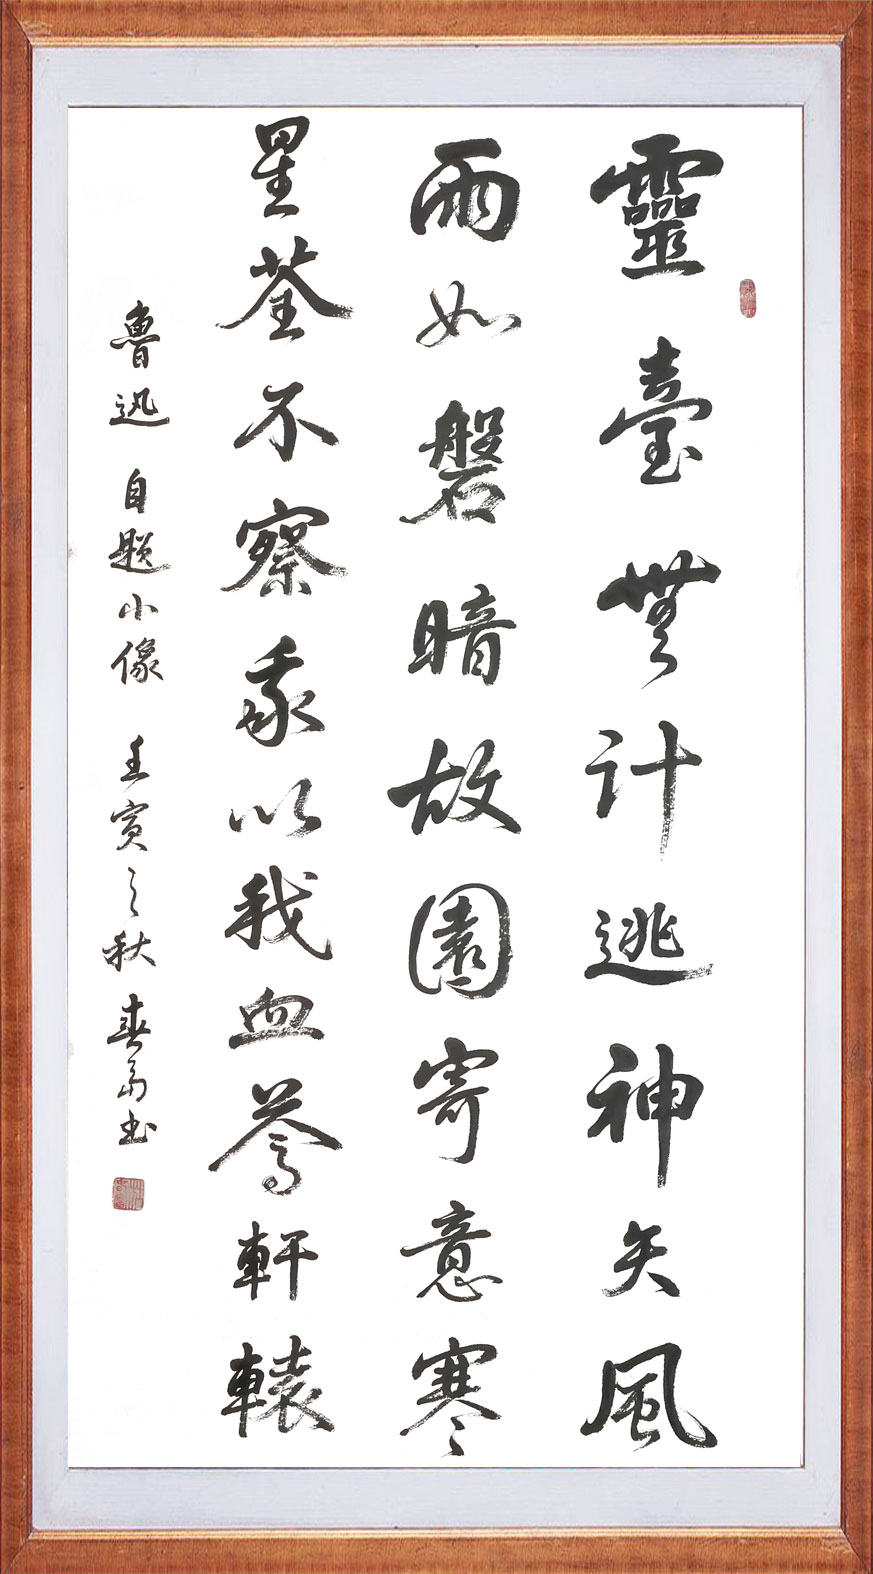 靈臺無計逃神矢風
雨如磐暗故園寄意寒
星荃不察我以我血薦軒轅
魯迅自題小像 壬寅之秋 春书